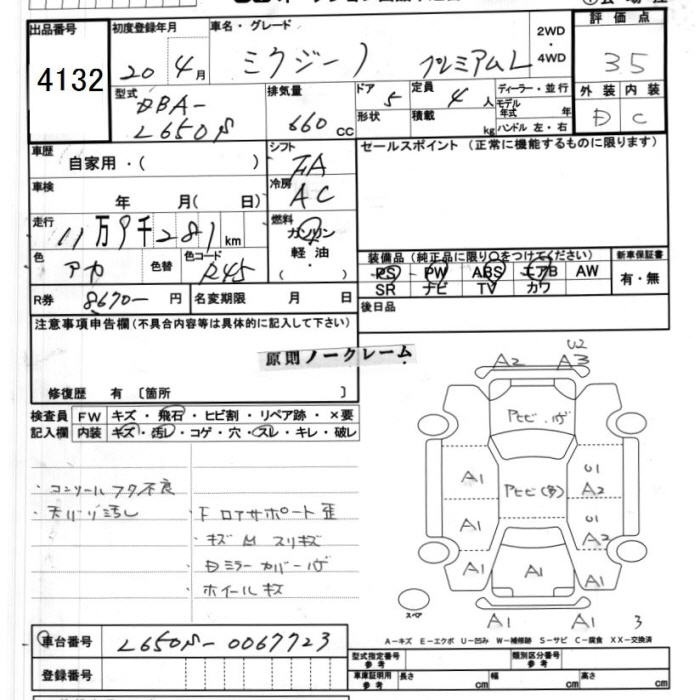 出品番号 初度登録年月 車名・グレード 2WD ・ 4WD 評価点
4132 20年4月 ミラジーノ プレミアムL 3.5
型式 DBA-L650S 排気量 660cc ドア 5 定員 4人 ディーラー・並行 外装 内装
形状 積載 kg モデル年式 年 D C
ハンドル 左・右
車歴 自家用・( ) シフト FA セールスポイント(正常に機能するものに限ります)
車検 年 月( 日) 冷房 AC
走行 11万9千281km 燃料 ガソリン 軽油 ・( )
色 アカ 色替 色コード R45
装備品(純正品に限り○をつけてください) 新車保証書
PS PW ABS エアB AW 有・無
SR ナビ TV カワ
R券 8670- 円 名変期限 月 日 後日品
注意事項申告欄(不具合内容等は具体的に記入して下さい)
原則ノークレーム
修復歴 有 〔箇所 〕
検査員記入欄 FW キズ・飛石・ヒビ割・リペア跡・×要
内装 キズ・汚し・コゲ・穴・スレ・キレ・破し
・コンソールフタ不良
・天バリ汚し
・F ロアサポート歪
・キズ M スリキズ
・Dミラーカバーハゲ
・ホイールキズ
U2
A2 A3
Pヒビ.ハゲ
A1 Pヒビ(多) U1 A2
A1 U1 A2
A1 A1 A1
スペア A1 A1 3
A-キズ E-エクボ U-凹み W-補修跡 S-サビ C-腐食 XX-交換済
車台番号 L650S-0067723
登録番号
型式指定番号 参考 類別区分番号 参考
車庫証明用 参考 長さ cm 幅 cm 高さ cm